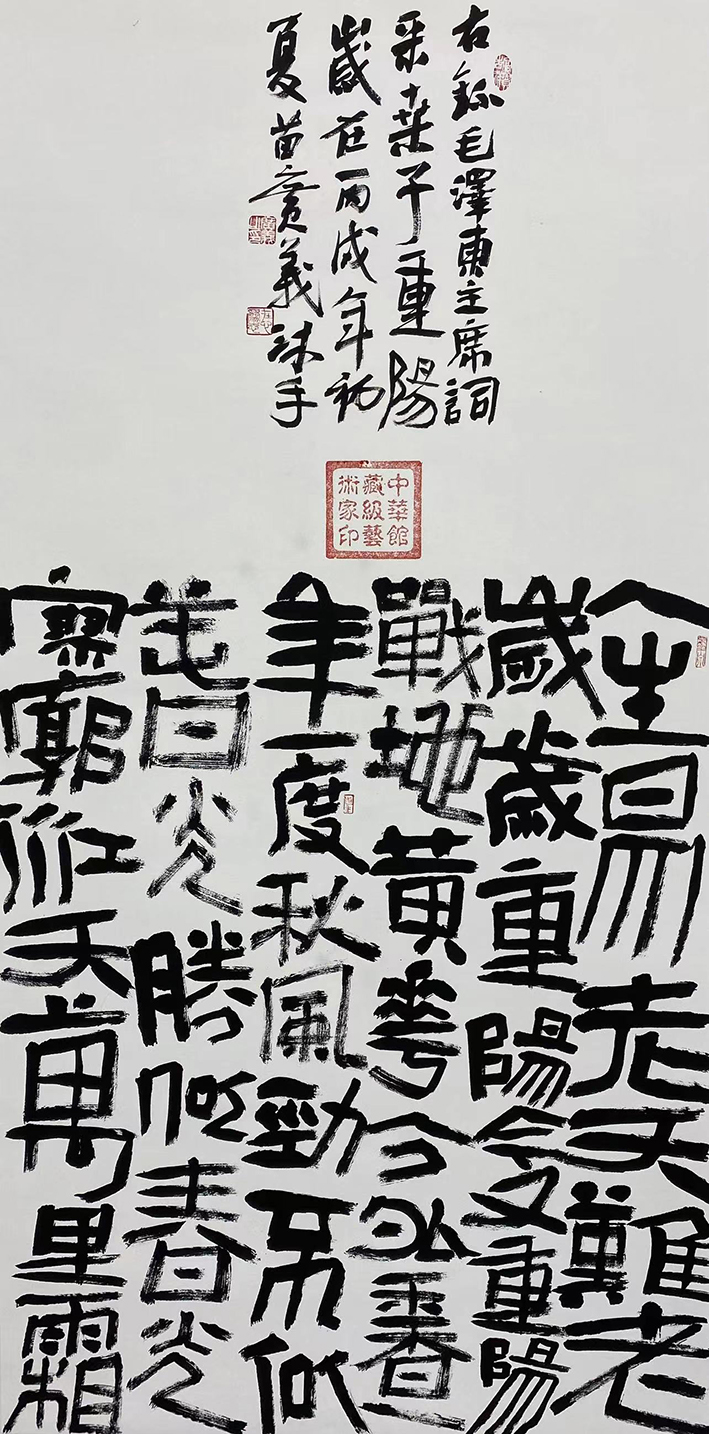 右錄毛澤東主席詞
采桒子重陽
歲在丙戌年初
夏苗廣義沐手
中華館
藏級藝
術家印
人生易老天難老
歲歲重陽今又重陽
戰地黃華分外香
年一度秋風勁不似
春光勝似春光
寥廓江天萬里霜